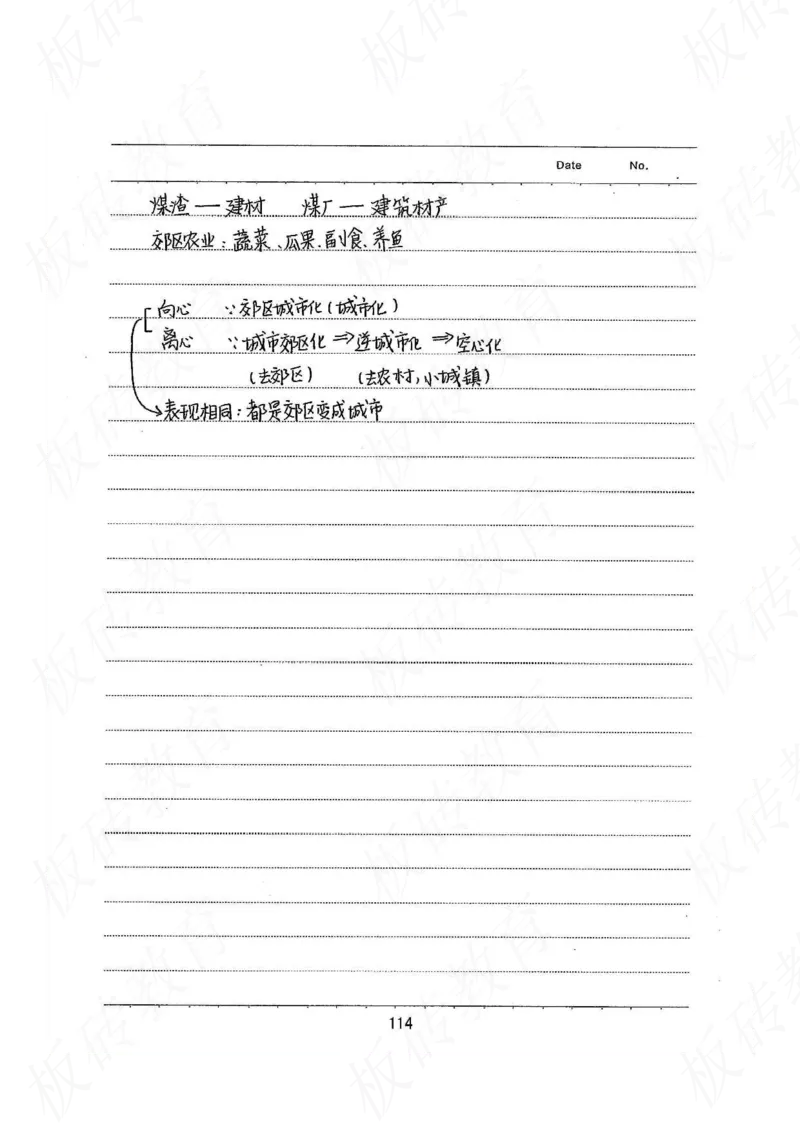 Date No.
煤渣—建材 煤厂—建筑材产
郊区农业:蔬菜、瓜果、副食、养鱼
向心 ∵郊区城市化(城市化)
离心 ∵城市郊区化⇒逆城市化⇒空心化
(去郊区) (去农村,小城镇)
表现相同:都是郊区变成城市
114
板砖教育